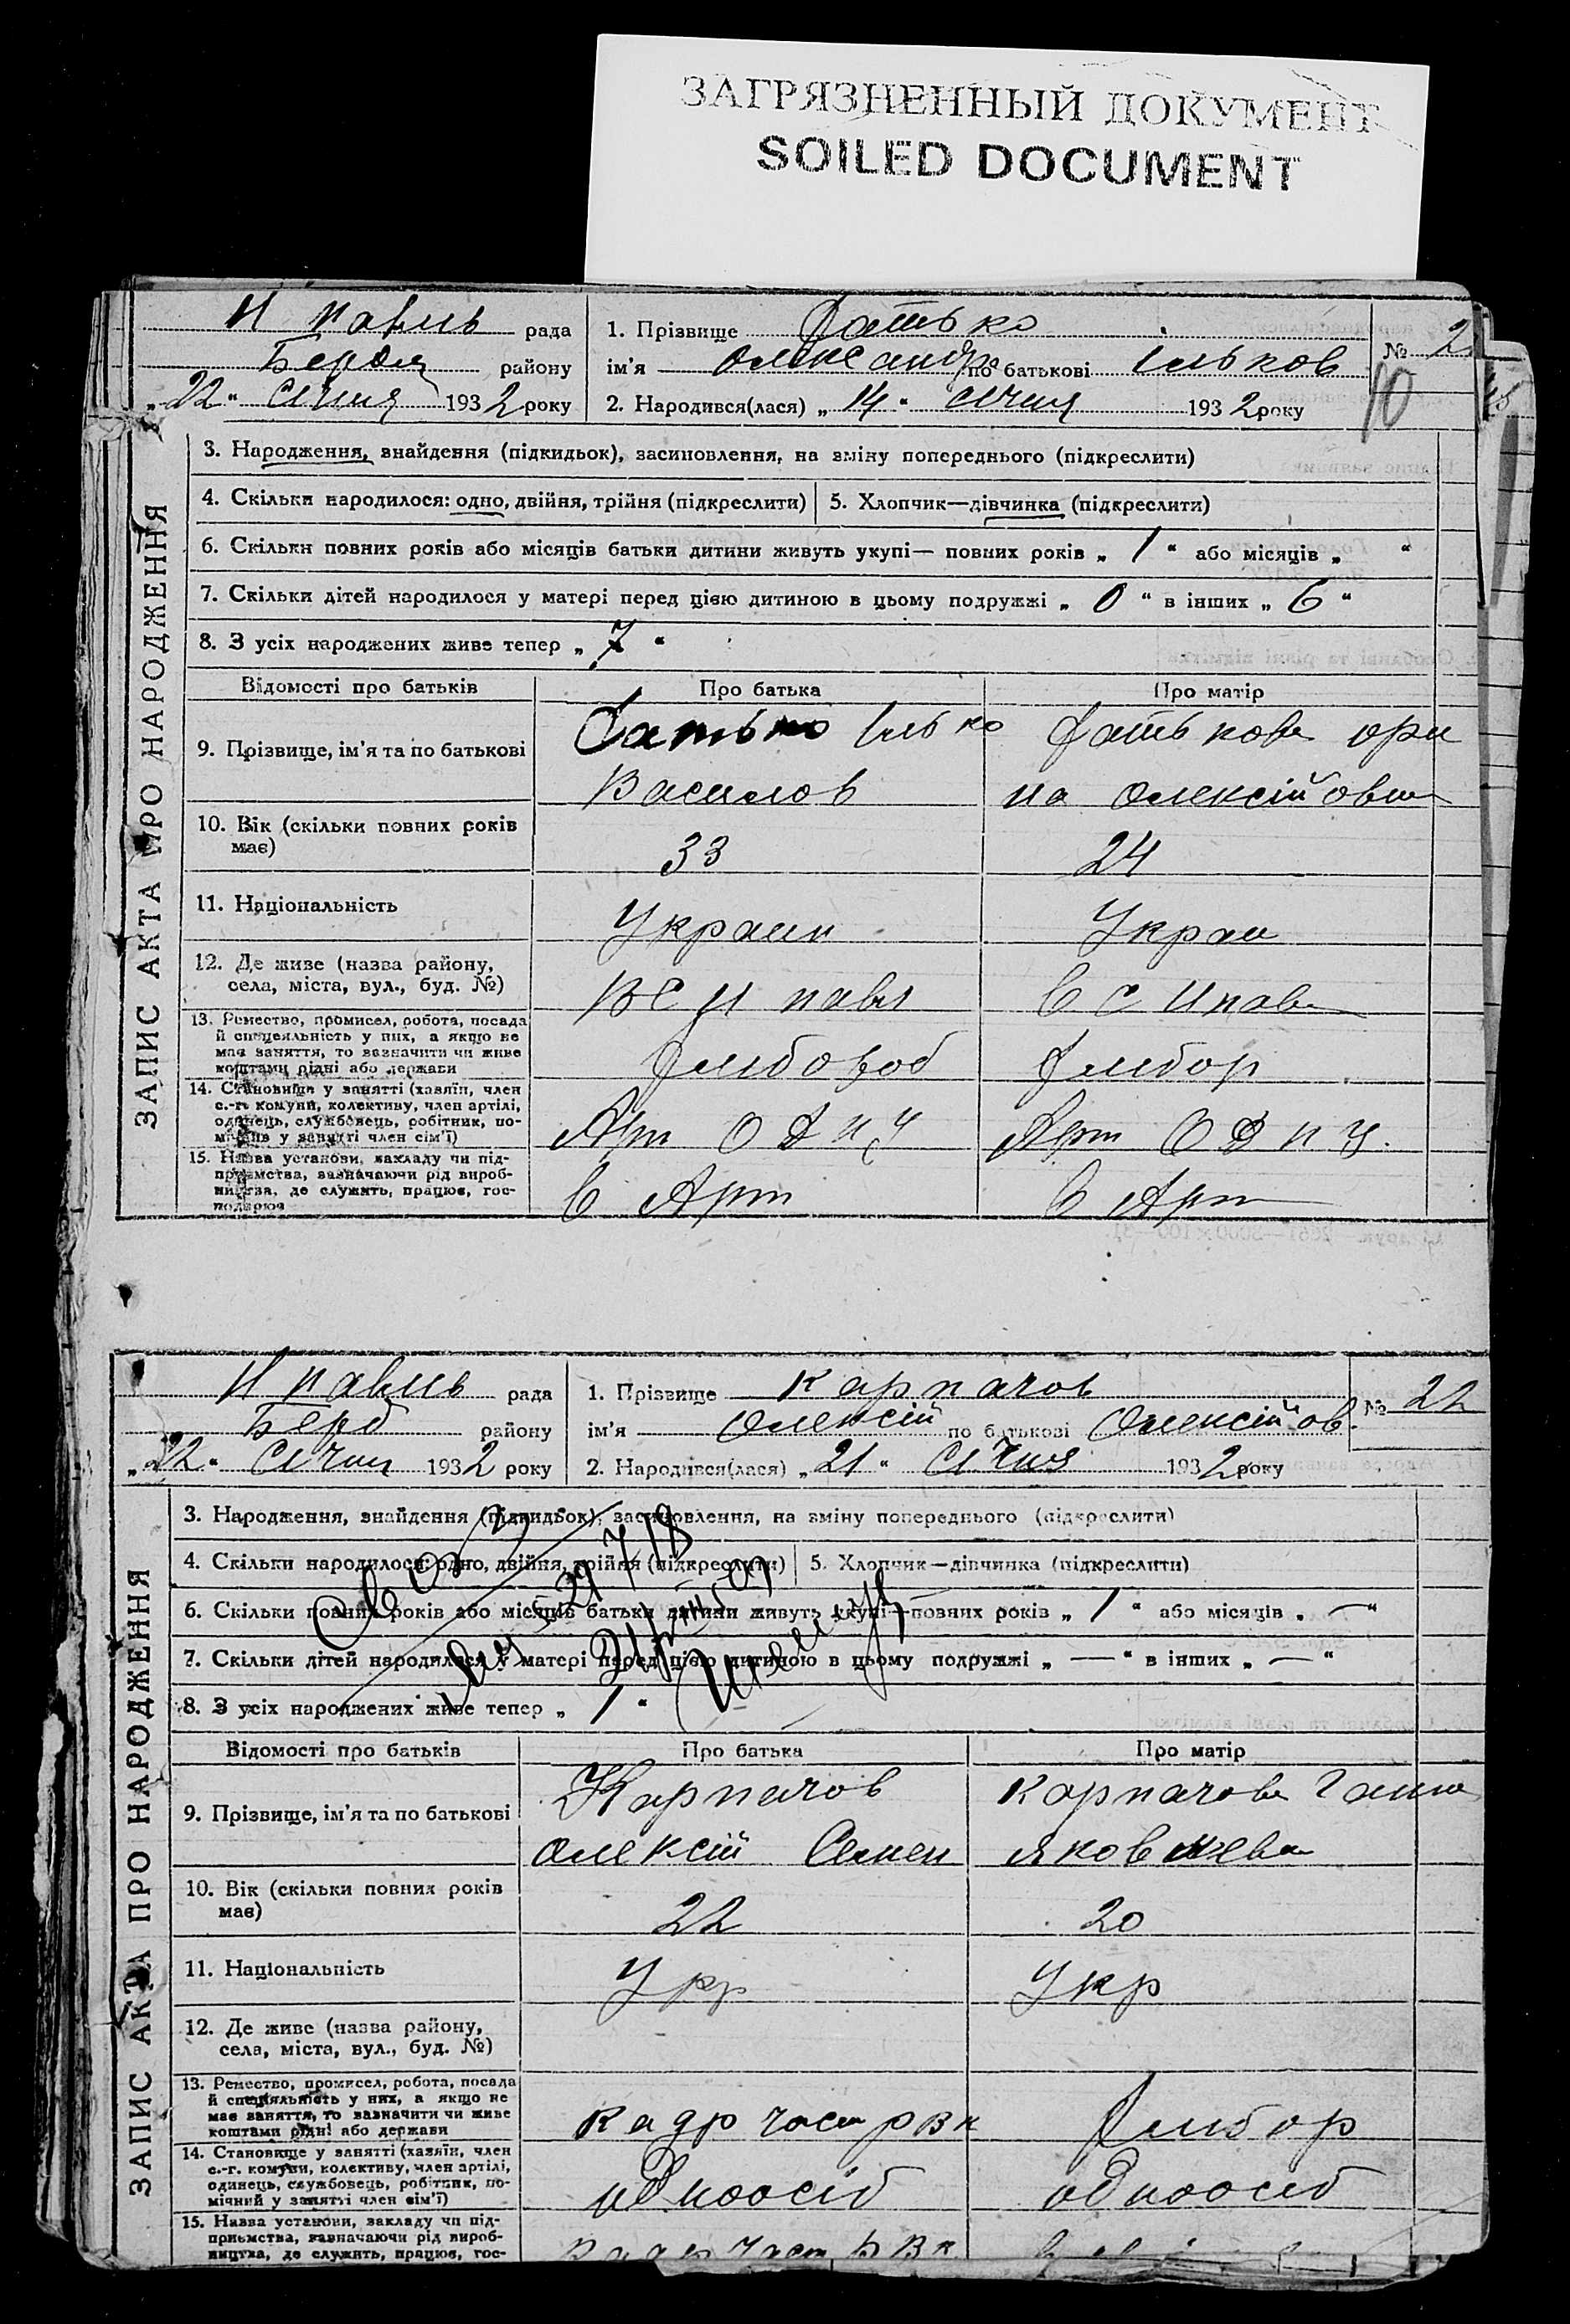 ЗАГРЯЗНЕННЫЙ ДОКУМЕНТ
SOILED DOCUMENT
рада
району
„22“ січня 1932 року
1. Прізвище
ім'я Олександр по батькові Ільков
2. Народився(лася) „14“ січня 1932 року
№ 2
10
ЗАПИС АКТА ПРО НАРОДЖЕННЯ
3. Народження, знайдення (підкидьок), засиновлення, на зміну попереднього (підкреслити)
4. Скільки народилося: одно, двійня, трійня (підкреслити)
5. Хлопчик—дівчинка (підкреслити)
6. Скільки повних років або місяців батьки дитини живуть укупі— повних років „ 1 “ або місяців „ “
7. Скільки дітей народилося у матері перед цією дитиною в цьому подружжі „ 0 “ в інших „ 6 “
8. З усіх народжених живе тепер „ 7 “
Відомості про батьків
Про батька
Про матір
9. Прізвище, ім'я та по батькові
Ілько
Василов
Олексійовна
10. Вік (скільки повних років має)
33
24
11. Національність
Украин
Украи
12. Де живе (назва району, села, міста, вул., буд. №)
13. Ремество, промисел, робота, посада й спеціяльність у них, а якщо не має заняття, то зазначити чи живе коштами рідні або держави
14. Становище у занятті (хазяїн, член с.-г. комуни, колективу, член артілі, одинець, службовець, робітник, помічний у занятті член сім'ї)
Арт
Арт
15. Назва установи, закладу чи підприємства, зазначаючи рід виробництва, де служить, працює, господарює
в Арт
в Арт
рада
Берд району
„22“ січня 1932 року
1. Прізвище Карпачов
ім'я Олексій по батькові Олексійов
2. Народився(лася) „21“ січня 1932 року
№ 22
ЗАПИС АКТА ПРО НАРОДЖЕННЯ
3. Народження, знайдення (підкидьок), засиновлення, на зміну попереднього (підкреслити)
4. Скільки народилося: одно, двійня, трійня (підкреслити)
5. Хлопчик—дівчинка (підкреслити)
6. Скільки повних років або місяців батьки дитини живуть укупі—повних років „ 1 “ або місяців „ — “
7. Скільки дітей народилося у матері перед цією дитиною в цьому подружжі „ — “ в інших „ — “
8. З усіх народжених живе тепер „ 1 “
Відомості про батьків
Про батька
Про матір
9. Прізвище, ім'я та по батькові
Карпачов
Олексій Семен
Карпачова Ганна
Яковлева
10. Вік (скільки повних років має)
22
20
11. Національність
Укр
Укр
12. Де живе (назва району, села, міста, вул., буд. №)
13. Ремество, промисел, робота, посада й спеціяльність у них, а якщо не має заняття, то зазначити чи живе коштами рідні або держави
кадр част РВК
14. Становище у занятті (хазяїн, член с.-г. комуни, колективу, член артілі, одинець, службовець, робітник, помічний у занятті член сім'ї)
одноосіб
одноосіб
15. Назва установи, закладу чи підприємства, зазначаючи рід виробництва, де служить, працює, гос-